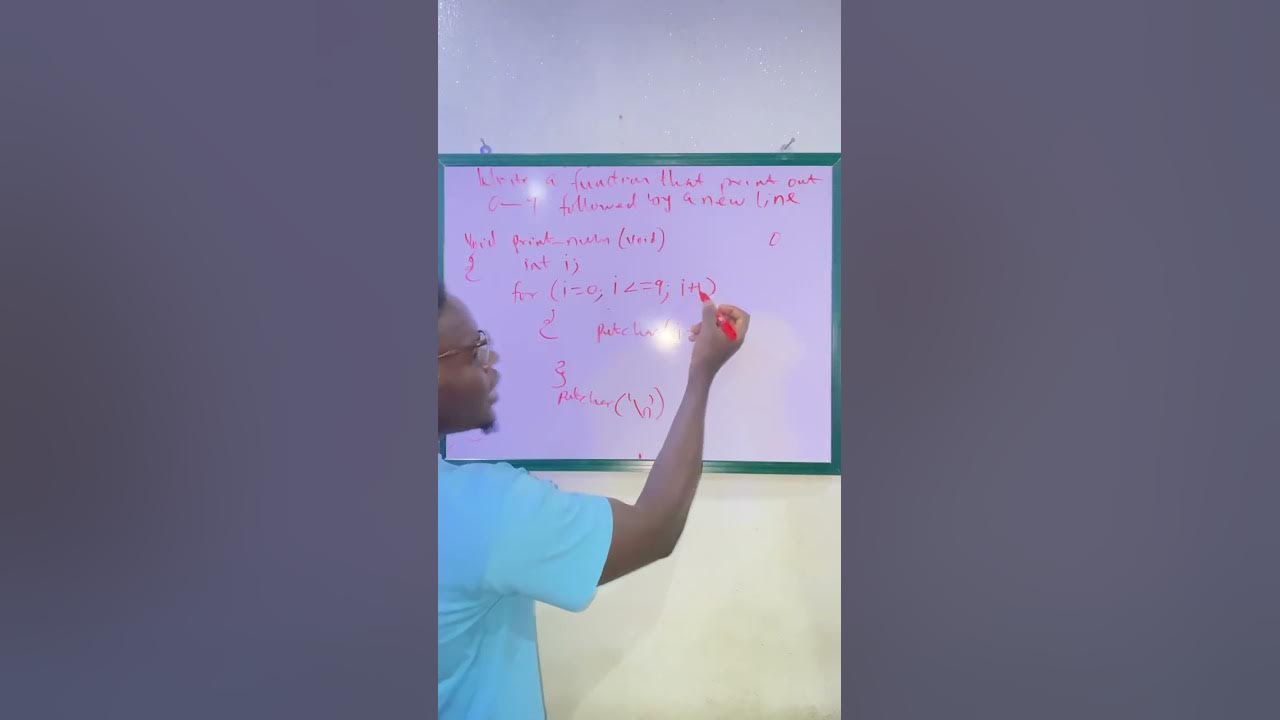 Write a function that print out
0-9 followed by a new line
void print-num(void) 0
{ int i;
for (i=0; i<=9; i++)
{ putchar(i
}
putchar('\n')